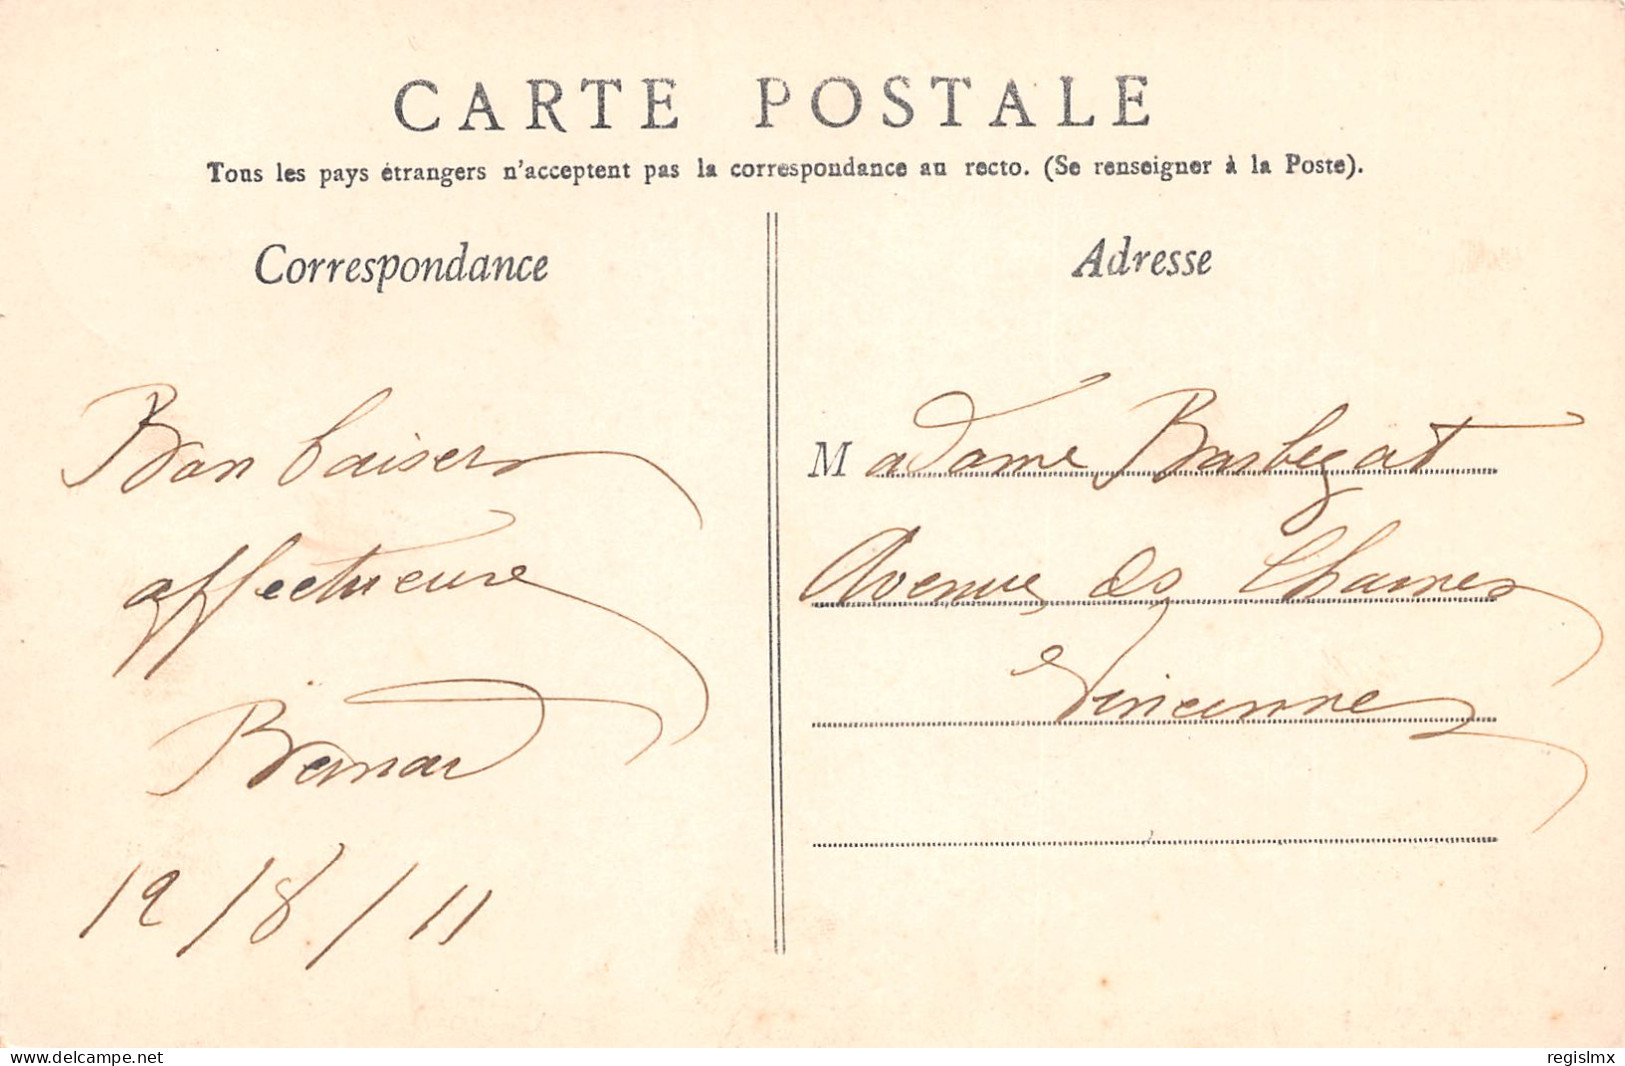 CARTE POSTALE
Tous les pays étrangers n'acceptent pas la correspondance au recto. (Se renseigner à la Poste).
Correspondance
Bon baisers
affectueuse
Bernard
12/8/11
Adresse
Madame Barbegat
Avenue des Charmes
Vincennes
www.delcampe.net
regislmx